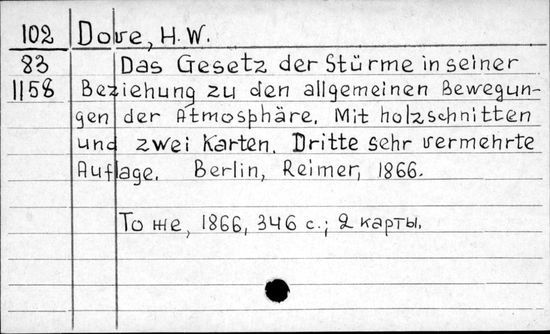 102 Dove, H. W.
83 Das Gesetz der Stürme in seiner
1158 Beziehung zu den allgemeinen Bewegun-
gen der Atmosphäre. Mit holzschnitten
und zwei Karten. Dritte sehr vermehrte
Auflage. Berlin, Reimer, 1866.
То же, 1866, 346 с.; 2 карты.